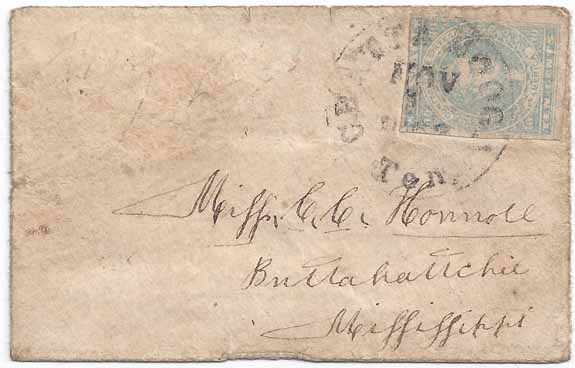 CHATTANOOGA
NOV
1
Ten.
Miss. C. C. Honnoll
Buttahattchie
Mississippi